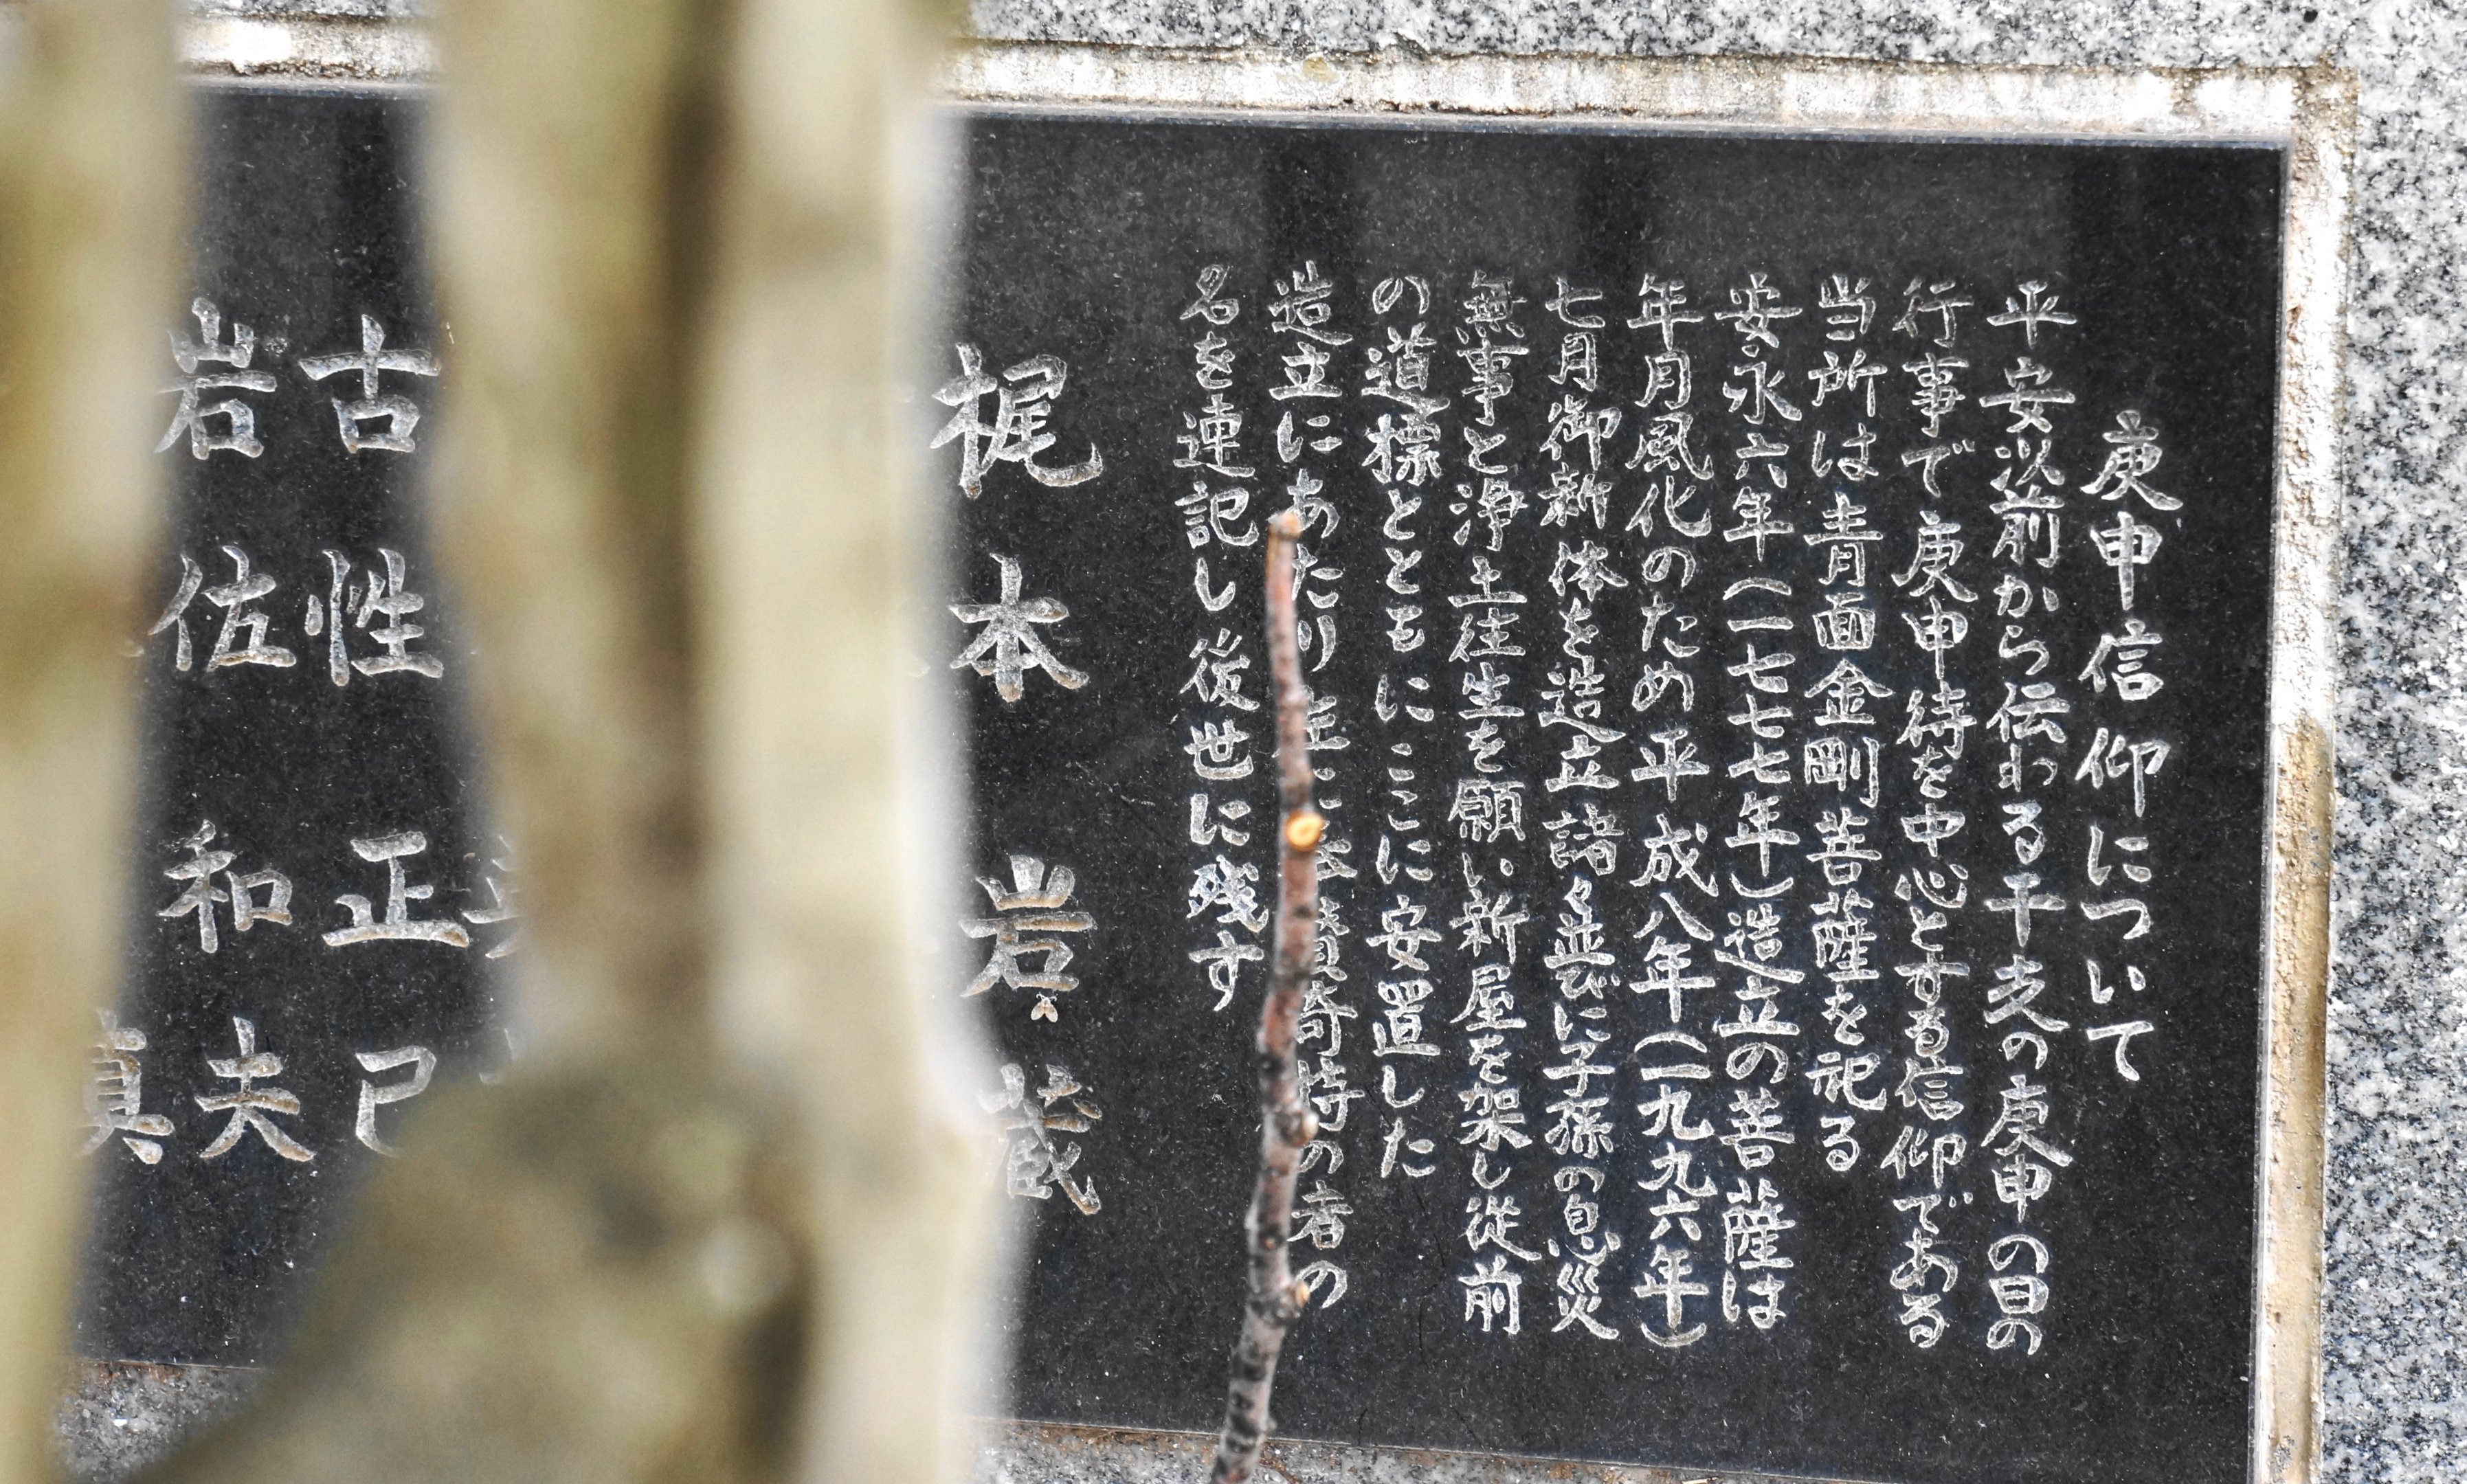 庚申信仰について
平安以前から伝わる干支の庚申の日の
行事で庚申待を中心とする信仰である
当所は青面金剛菩薩を祀る
安永六年（一七七七年）造立の菩薩は
年月風化のため平成八年（一九九六年）
七月御新体を造立諸々並びに子孫の息災
無事と浄土往生を願い新屋を架し従前
の道標とともにここに安置した
造立にあたり 奇特の者の
名を連記し後世に残す
梶本 岩蔵
古性 正已
岩佐 和夫
真